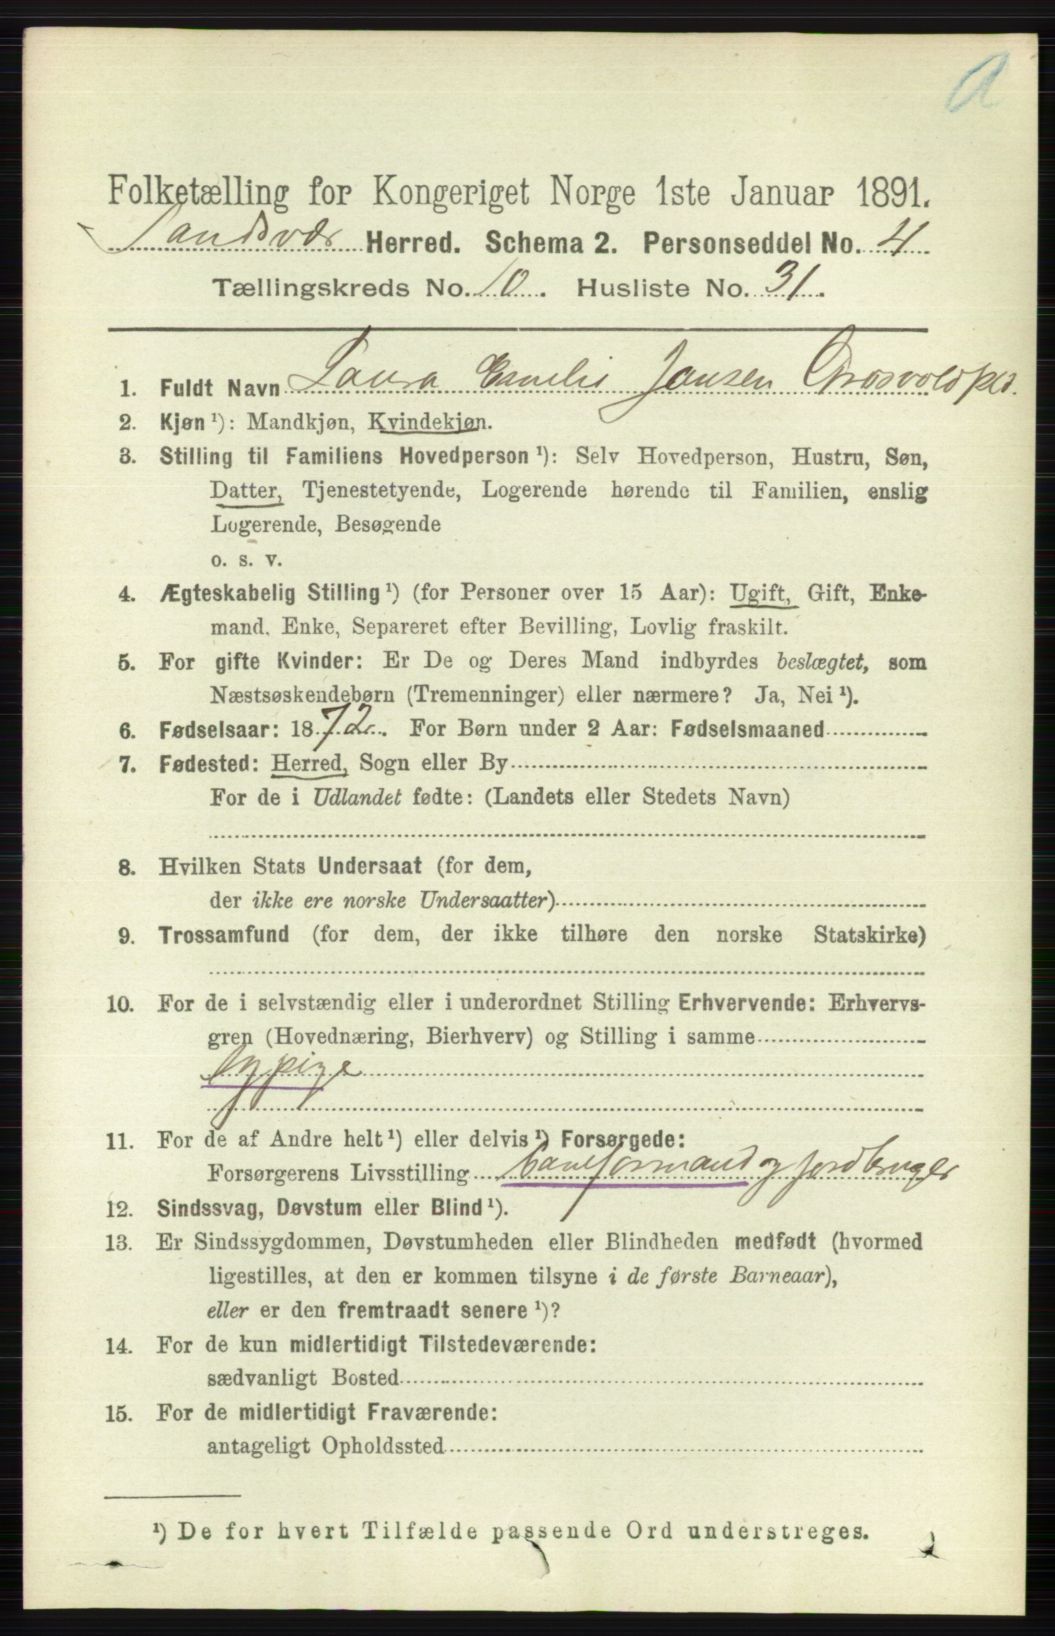 a
Folketælling for Kongeriget Norge 1ste Januar 1891.
Sandsvær Herred. Schema 2. Personseddel No. 4
Tællingskreds No. 10. Husliste No. 31.
1. Fuldt Navn Laura Emelie Jansen
2. Kjøn ¹): Mandkjøn, Kvindekjøn.
3. Stilling til Familiens Hovedperson ¹): Selv Hovedperson, Hustru, Søn,
Datter, Tjenestetyende, Logerende hørende til Familien, enslig
Logerende, Besøgende
o. s. v.
4. Ægteskabelig Stilling ¹) (for Personer over 15 Aar): Ugift, Gift, Enke-
mand, Enke, Separeret efter Bevilling, Lovlig fraskilt.
5. For gifte Kvinder: Er De og Deres Mand indbyrdes beslægtet, som
Næstsøskendebørn (Tremenninger) eller nærmere? Ja, Nei ¹).
6. Fødselsaar: 1872. For Børn under 2 Aar: Fødselsmaaned
7. Fødested: Herred, Sogn eller By
For de i Udlandet fødte: (Landets eller Stedets Navn)
8. Hvilken Stats Undersaat (for dem,
der ikke ere norske Undersaatter)
9. Trossamfund (for dem, der ikke tilhøre den norske Statskirke)
10. For de i selvstændig eller i underordnet Stilling Erhvervende: Erhvervs-
gren (Hovednæring, Bierhverv) og Stilling i samme
Sypige
11. For de af Andre helt ¹) eller delvis ¹) Forsørgede:
Forsørgerens Livsstilling baneformand og jordbruger
12. Sindssvag, Døvstum eller Blind ¹).
13. Er Sindssygdommen, Døvstumheden eller Blindheden medfødt (hvormed
ligestilles, at den er kommen tilsyne i de første Barneaar),
eller er den fremtraadt senere ¹)?
14. For de kun midlertidigt Tilstedeværende:
sædvanligt Bosted
15. For de midlertidigt Fraværende:
antageligt Opholdssted
¹) De for hvert Tilfælde passende Ord understreges.